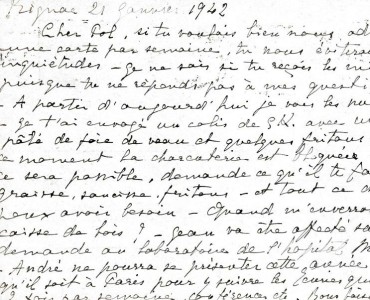 Prignac 21 Janvier 1942
Cher Pol, si tu voulais bien nous ad
une carte par semaine, tu nous éviterai
inquiétudes - Je ne sais si tu reçois les mi
puisque tu ne réponds pas à mes questi
- A partir d'aujourd'hui je vais les nu
- Je t'ai envoyé un colis de 5K. avec un
pâté de foie de veau et quelques fritons
ce moment la charcuterie est
ce sera possible, demande ce qu'il te fa
graisse, saucisse, fritons - et tout ce d
peux avoir besoin - Quand m'enverra
caisse de bois ? - Jean va être affecté sa
demande au laboratoire de l'hôpital M
- André ne pourra se présenter cette année
qu'il soit à Paris pour y suivre les
fois par semaine, conférences